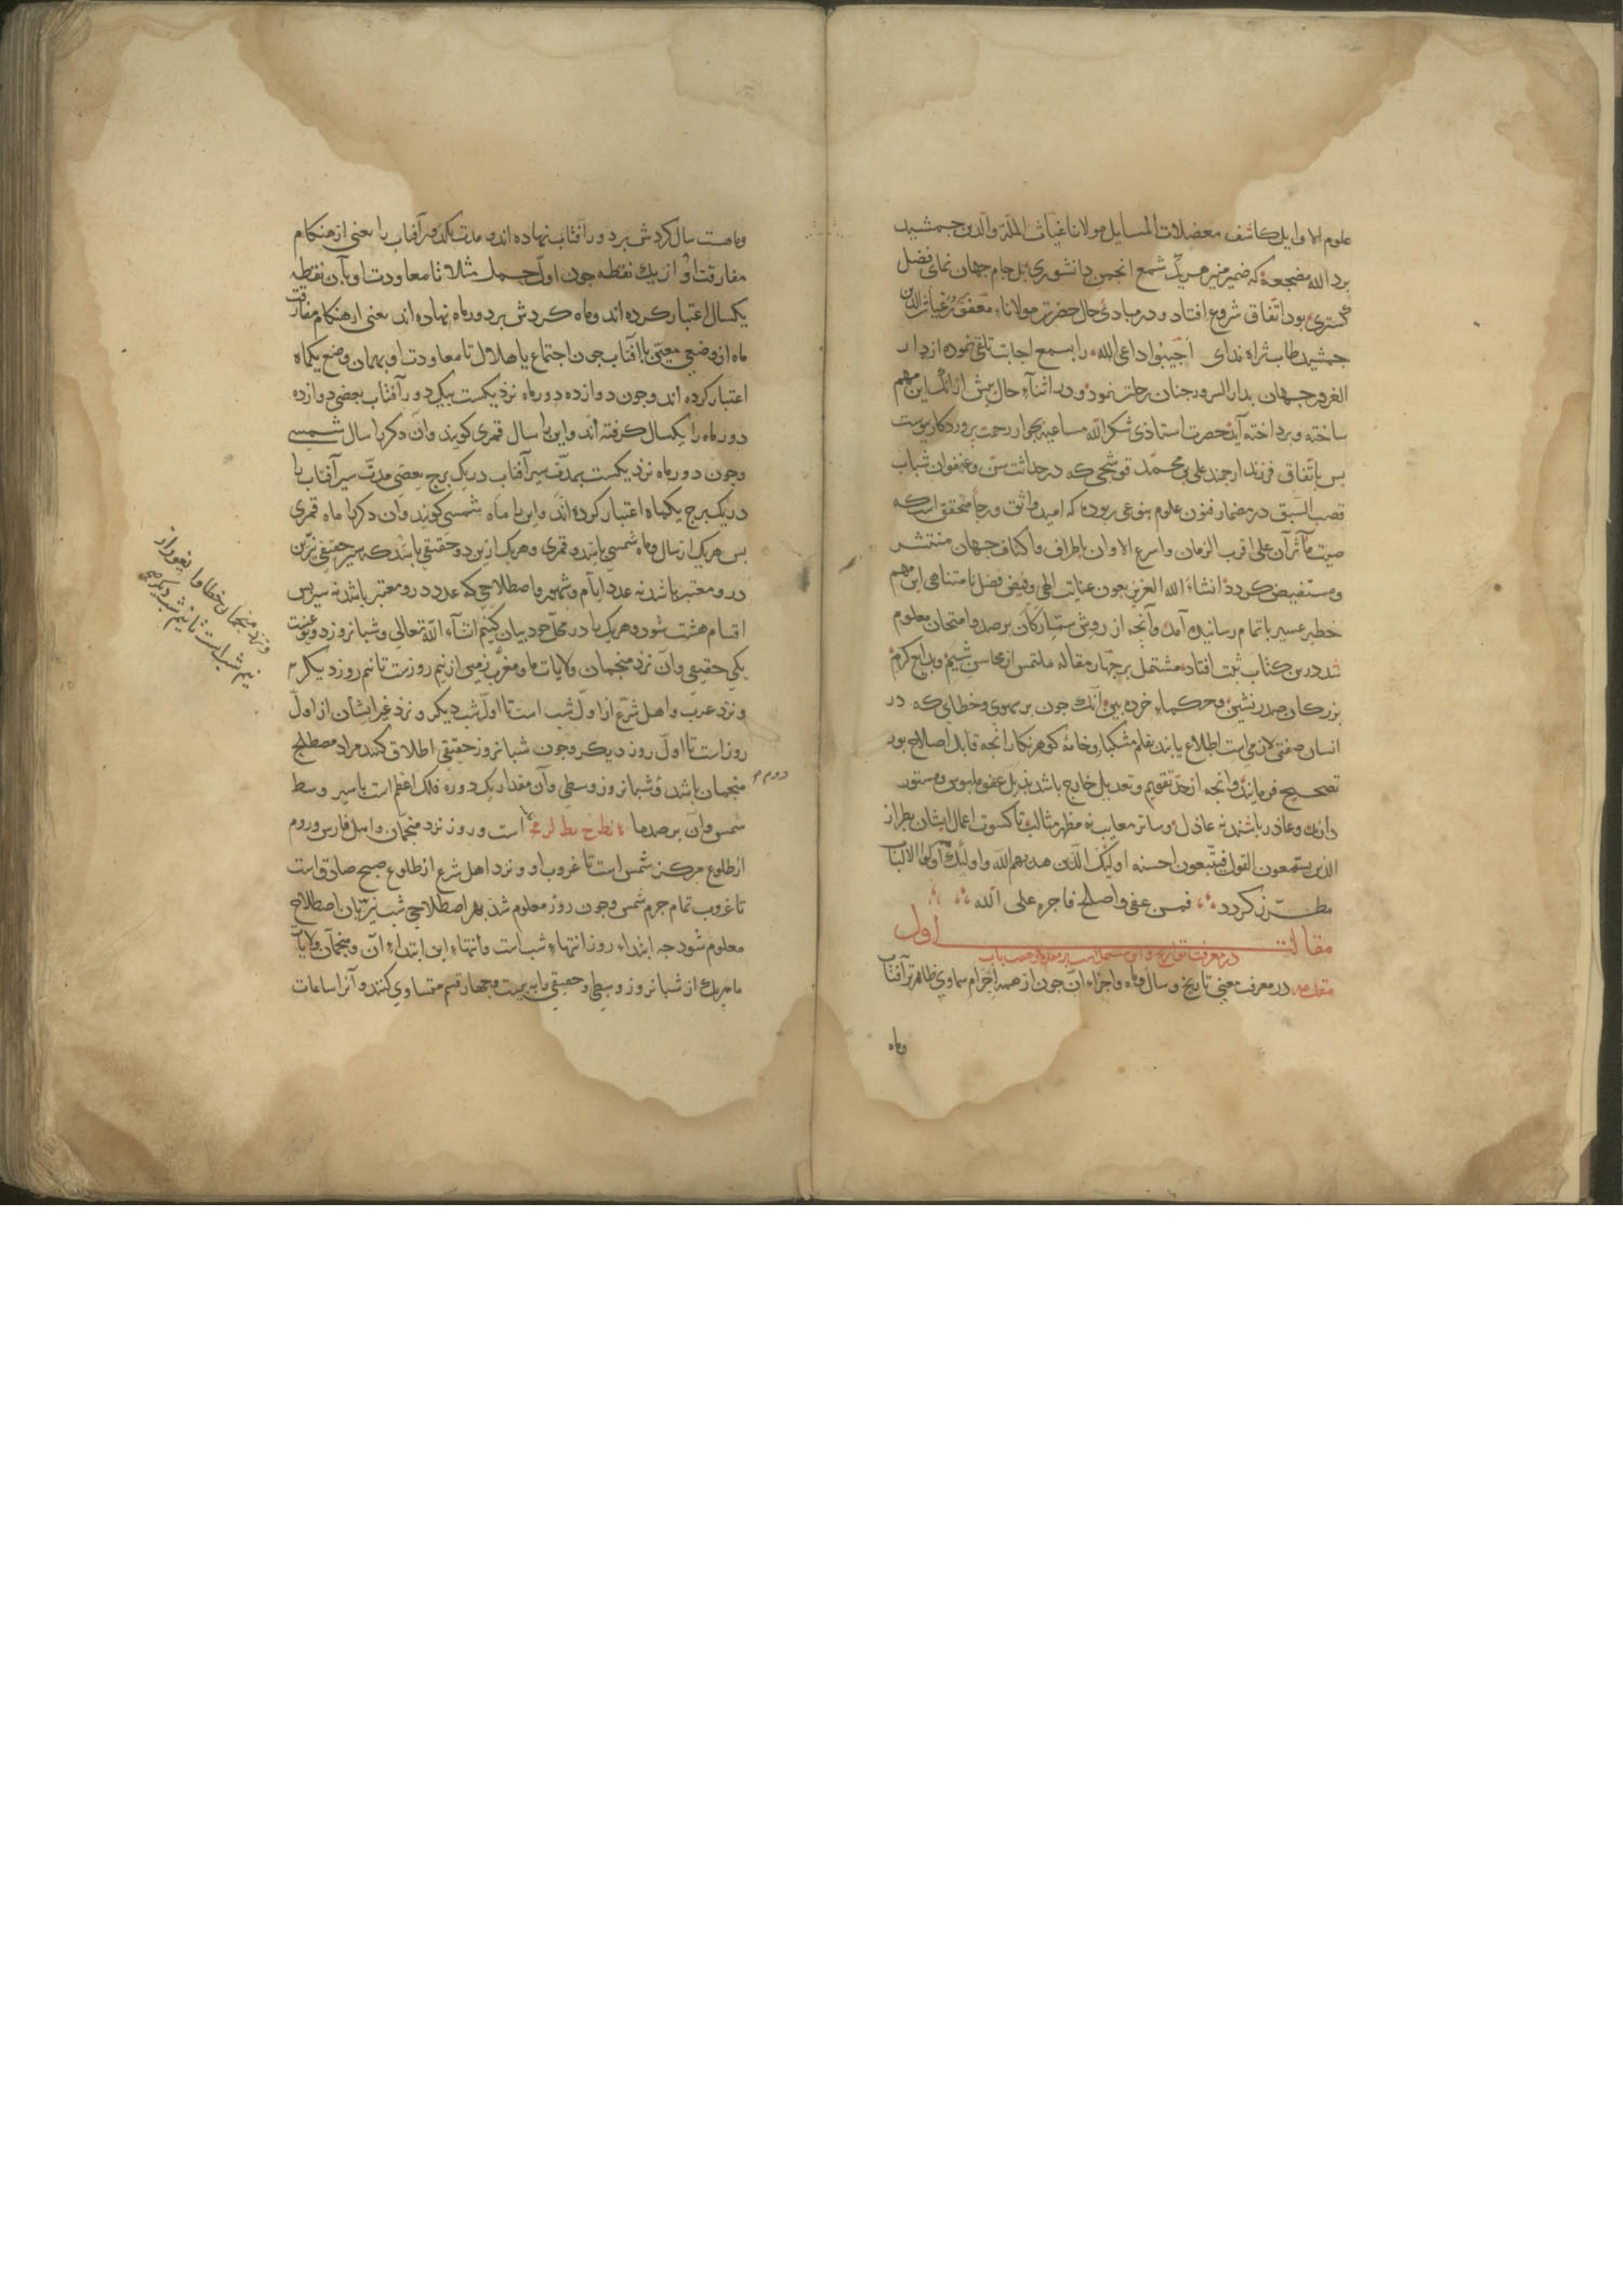 علوم الاوایل کاشف معضلات المسایل مولانا غیاث الملة والدین جمشید
برد الله مضجعه که ضمیر منیر هریک شمع انجمن دانشوری بل جام جهان نمای فضل
گستری بود اتفاق شروع افتاد و در مبادئ حال حضرت مولاناء مغفور غیاث الدین
جمشید طاب ثراه ندای اجیبوا داعی الله را بسمع اجابت تلقی نموده از دار
الغرور جهان بدار السرور جنان رحلت نمود و در اثناء حال بیش از انک این مهم
ساخته وبرداخته آید حضرت استاذی شکر الله مساعیه بجوار رحمت پروردکار پیوست
بس باتفاق فرزند ارجمند علی بن محمد قوشجی که در حداثت سن وعنفوان شباب
قصب السبق در مضمار فنون علوم بنوعی ربوده که امید واثق ورجا متحقق است که
صیت مآثر آن علی اقرب الزمان واسرع الاوان باطراف واکناف جهان منتشر
ومستفیض کردد انشاء الله العزیز بعون عنایت الهی وفیض فضل نامتناهی این مهم
خطیر عسیر باتمام رسانیده آمد وآنجه از روش ستارکان برصد وامتحان معلوم
شد درین کتاب ثبت افتاد مشتمل بر چهار مقاله ملتمس از محاسن شیم وبدایع کرم
بزرکان صدرنشین وحکماء خرده بین آنک جون بر سهوی وخطایی که در
انسان صفتی لازمی است اطلاع یابند بقلم مشکبار وخامه گوهرنکار انجه قابل اصلاح بود
تصحیح فرمایند وانجه از حد تقویم وتعدیل خارج باشد بذیل عفو ملبوس ومستور
دارند وعاذر باشند نه عاذل وساتر معایب نه مظهر مثالب تا کسوت اعمال ایشان بطراز
الذین یستمعون القول فیتبعون احسنه اولئک الذین هدیهم الله واولئک هم اولوا الالباب
مطرز کردد فمن عفی واصلح فاجره علی الله
مقالت اول
در معرفت تواریخ واین مشتمل است بر مقدمه وهفت باب
مقدمه در معرفت معنی تاریخ وسال وماه واجزاء آن جون از همه اجرام سماوی ظاهرتر آفتاب
وماه
وماهست سال کردش بر دور آفتاب نهاده اند و مدت یکدور آفتاب را یعنی از هنکام
مفارقت او از یک نقطه جون اول حمل مثلا تا معاودت او بآن نقطه
یکسال اعتبار کرده اند وماه کردش بر دور ماه نهاده اند یعنی از هنکام مفارقت
ماه از وضعی معین با آفتاب جون اجتماع یا هلال تا معاودت او بهمان وضع یکماه
اعتبار کرده اند وجون دوازده دور ماه نزدیکست بیک دور آفتاب بعضی دوازده
دور ماه را یکسال کرفته اند واین را سال قمری کویند وآن دکر را سال شمسی
وجون دور ماه نزدیکست بمدت سیر آفتاب در یک برج بعضی مدت سیر آفتاب را
در یک برج یکماه اعتبار کرده اند واین را ماه شمسی کویند وآن دکر را ماه قمری
بس هریک از سال وماه شمسی باشد و قمری وهریک ازین دو حقیقی باشد که سیر حقیقی نیرین
درو معتبر باشد نه عدد ایام وشهور واصطلاحی که عدد درو معتبر باشد نه سیر بس
اقسام هشت شود وهریک را در محل خود بیان کنیم انشاء الله تعالی وشبانروز دو نوعست
یکی حقیقی وآن نزد منجمان ولایات ما ومغرب زمین از نیم روزست تا نیم روز دیکر
ونزد منجمان خطا وایغور از
نیم شب است تا نیم شب دیکر
ونزد عرب واهل شرع از اول شب است تا اول شب دیکر ونزد غیر ایشان از اول
روز است تا اول روز دیکر وجون شبانروز حقیقی اطلاق کنند مراد مصطلح
منجمان باشد وشبانروز وسطی وآن مقدار یک دوره فلک اعظم است با سیر وسط
دوم
شمس وآن برصد ما است وروز نزد منجمان واهل فارس وروم
از طلوع مرکز شمس است تا غروب او ونزد اهل شرع از طلوع صبح صادق است
تا غروب تمام جرم شمس وجون روز معلوم شد بهر اصطلاحی شب نیز بآن اصطلاح
معلوم شود جه ابتداء روز انتهاء شب است وانتهاء این ابتداء آن ومنجمان ولایات
ما هریک از شبانروز وسطی وحقیقی را به بیست وچهار قسم متساوی کنند و آنرا ساعات